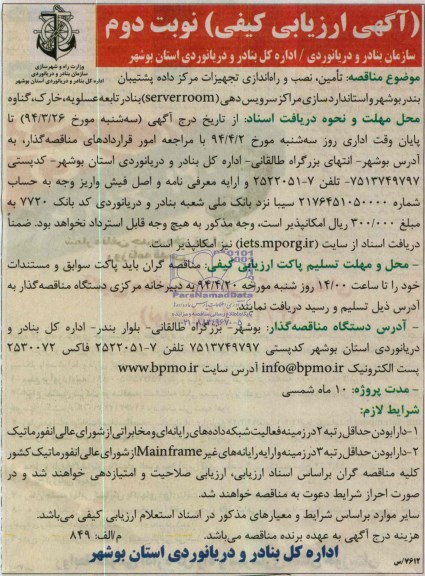 (آگهی ارزیابی کیفی) نوبت دوم
سازمان بنادر و دریانوردی / اداره کل بنادر و دریانوردی استان بوشهر
وزارت راه و شهرسازی
سازمان بنادر و دریانوردی
اداره کل بنادر و دریانوردی استان بوشهر
موضوع مناقصه: تأمین، نصب و راه‌اندازی تجهیزات مرکز داده پشتیبان
بندر بوشهر و استانداردسازی مراکز سرویس دهی (serverroom) بنادر تابعه عسلویه، خارک، گناوه
محل مهلت و نحوه دریافت اسناد: از تاریخ درج آگهی (سه‌شنبه مورخ ۹۴/۳/۲۶) تا
پایان وقت اداری روز سه‌شنبه مورخ ۹۴/۴/۲ با مراجعه امور قراردادهای مناقصه‌گذار، به
آدرس بوشهر- انتهای بزرگراه طالقانی- اداره کل بنادر و دریانوردی استان بوشهر- کدپستی
۷۵۱۳۷۴۹۷۹۷- تلفن ۷-۲۵۲۲۰۵۱ و ارایه معرفی نامه و اصل فیش واریز وجه به حساب
شماره ۲۱۷۶۴۵۱۰۵۰۰۰۰ سیبا نزد بانک ملی شعبه بنادر و دریانوردی کد بانک ۷۷۲۰ به
مبلغ ۳۰۰/۰۰۰ ریال امکانپذیر است، وجه مذکور به هیچ وجه قابل استرداد نخواهد بود. ضمناً
دریافت اسناد از سایت (iets.mporg.ir) نیز امکانپذیر است.
- محل و مهلت تسلیم پاکت ارزیابی کیفی: مناقصه گران باید پاکت سوابق و مستندات
خود را تا ساعت ۱۴/۰۰ روز شنبه مورخه ۹۴/۴/۲۰ به دبیرخانه مرکزی دستگاه مناقصه‌گذار به
آدرس ذیل تسلیم و رسید دریافت نمایند.
- آدرس دستگاه مناقصه‌گذار: بوشهر- بزرگراه طالقانی- بلوار بندر- اداره کل بنادر و
دریانوردی استان بوشهر کدپستی ۷۵۱۳۷۴۹۷۹۷ تلفن ۷-۲۵۲۲۰۵۱ فاکس ۲۵۳۰۰۷۲
پست الکترونیک info@bpmo.ir آدرس سایت www.bpmo.ir
- مدت پروژه: ۱۰ ماه شمسی
شرایط لازم:
۱-دارا بودن حداقل رتبه ۲ در زمینه فعالیت شبکه داده‌های رایانه‌ای و مخابراتی از شورای عالی انفورماتیک
۲-دارا بودن حداقل رتبه ۳ در زمینه و ارایه رایانه‌های غیر Mainframe از شورای عالی انفورماتیک کشور
کلیه مناقصه گران براساس اسناد ارزیابی، ارزیابی صلاحیت و امتیازدهی خواهند شد و در
صورت احراز شرایط دعوت به مناقصه خواهند شد.
سایر موارد براساس شرایط و معیارهای مذکور در اسناد استعلام ارزیابی کیفی می‌باشد.
هزینه درج آگهی به عهده برنده مناقصه می‌باشد. م/الف: ۸۴۹
اداره کل بنادر و دریانوردی استان بوشهر
۷۶۱۲/س